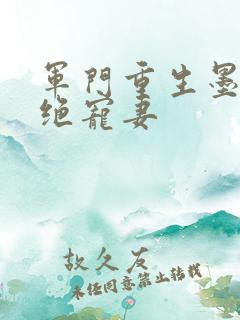 军門重生墨
绝寵妻
故久友
未经同意禁止转载